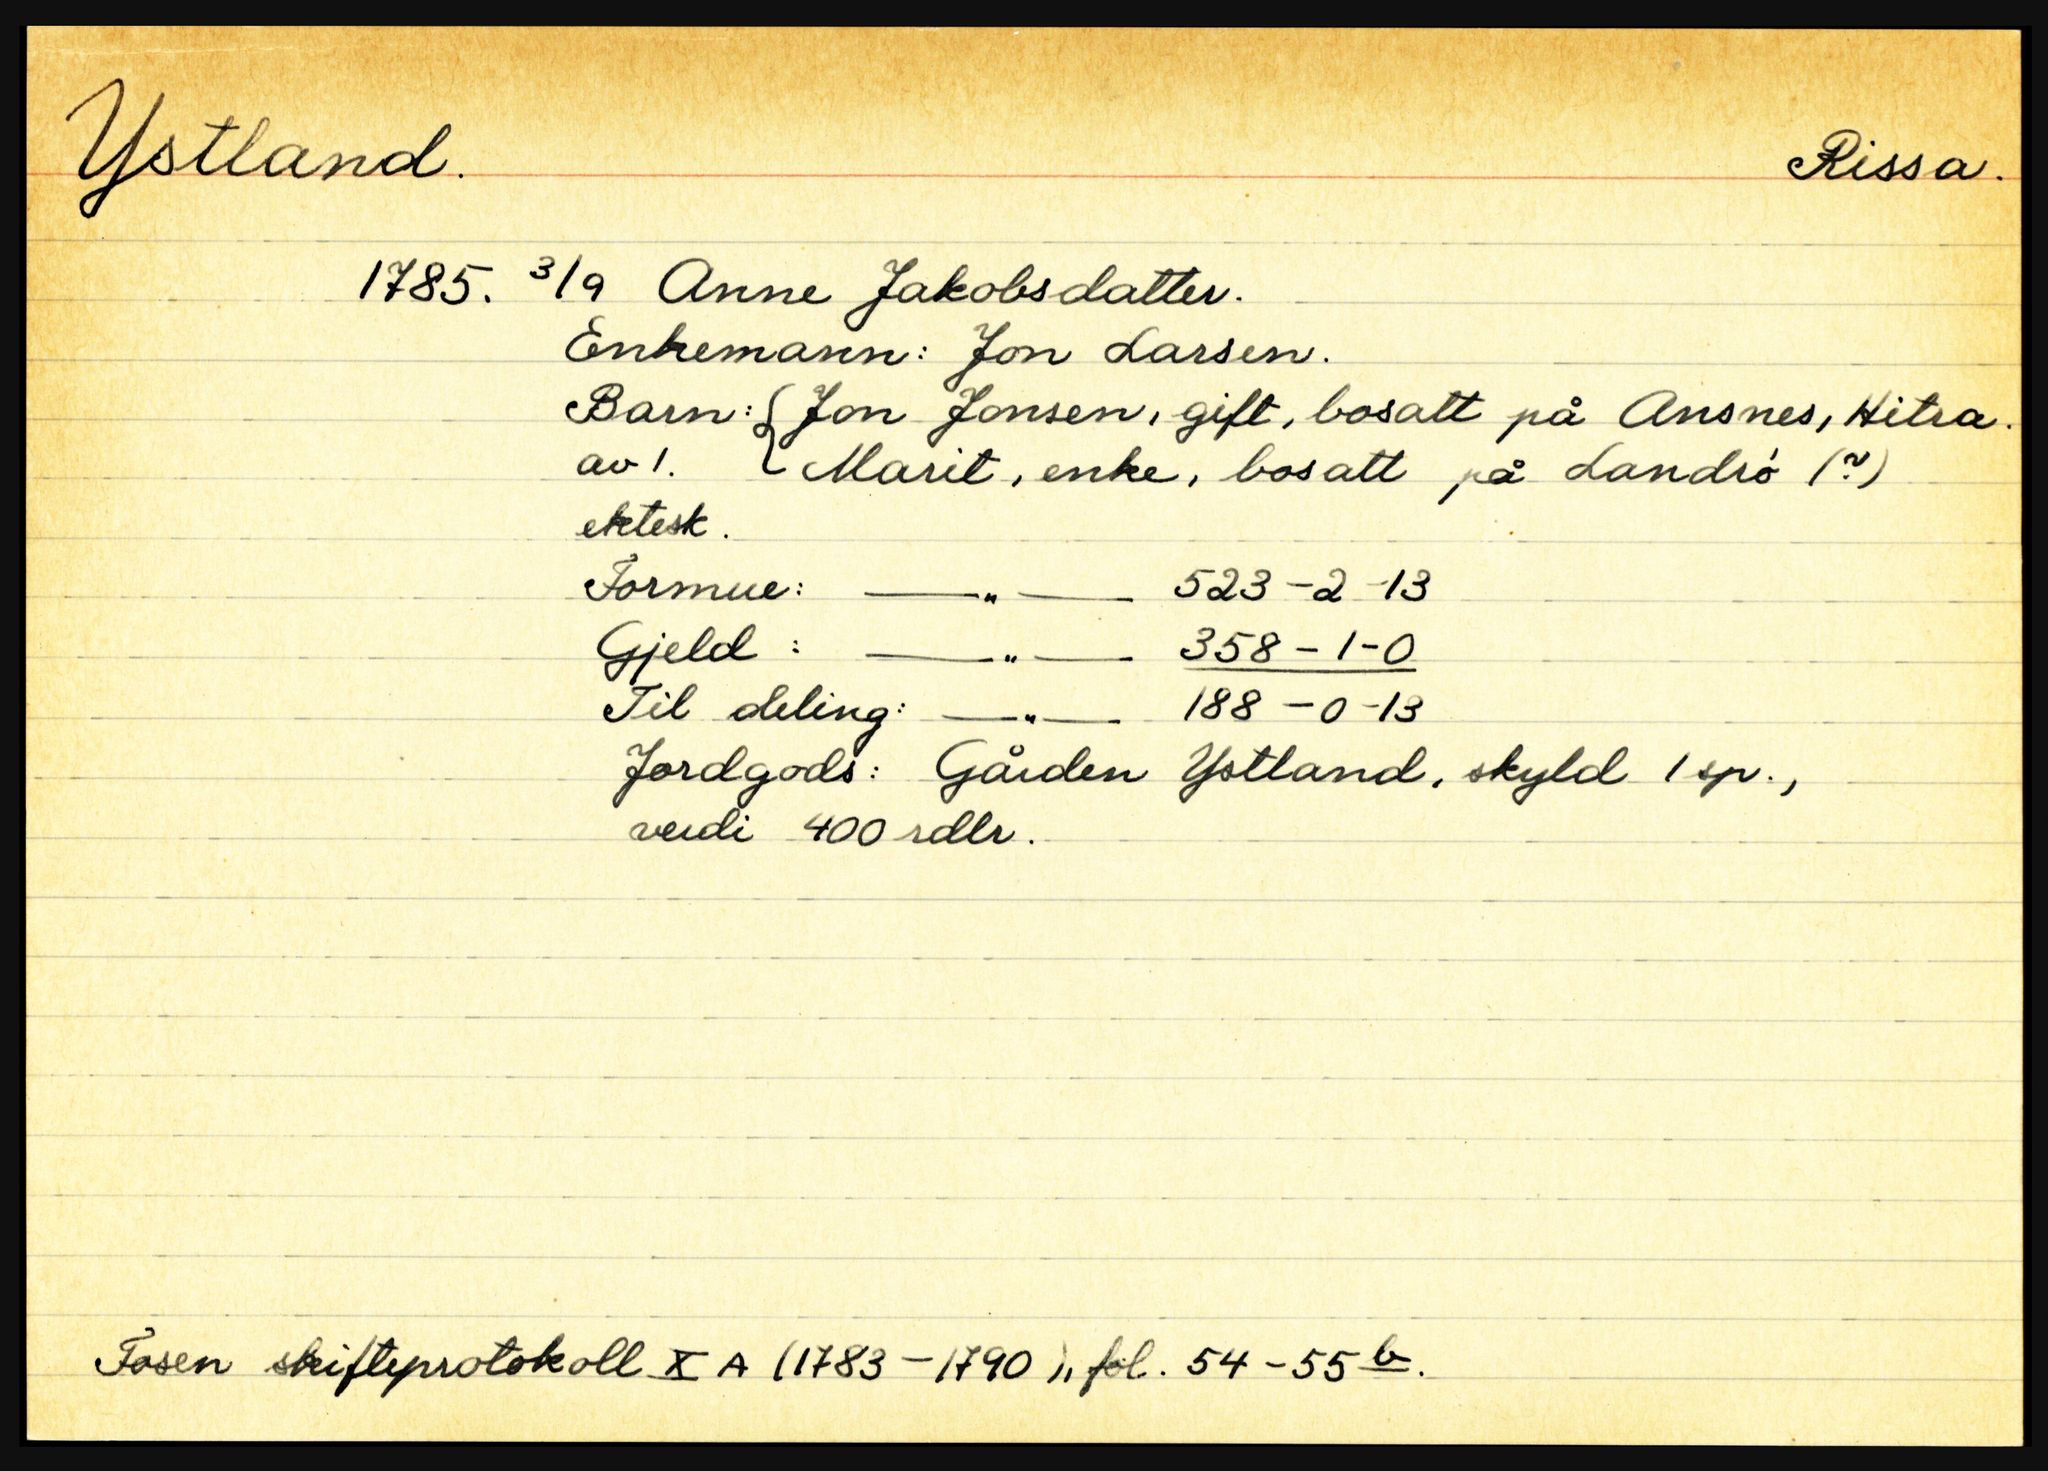 Ystland.
Rissa.
1785. 3/9 Anne Jakobsdatter.
Enkemann: Jon Larsen.
Barn: { Jon Jonsen, gift, bosatt på Ansnes, Hitra.
av 1. { Marit, enke, bosatt på Landrö (?)
ektesk.
Formue: —„— 523-2-13
Gjeld: —„— 358-1-0
Til deling: —„— 188-0-13
Jordgods: Gården Ystland, skyld 1 sp.,
verdi 400 rdlr.
Fosen skifteprotokoll X A (1783-1790), fol. 54-55 b.